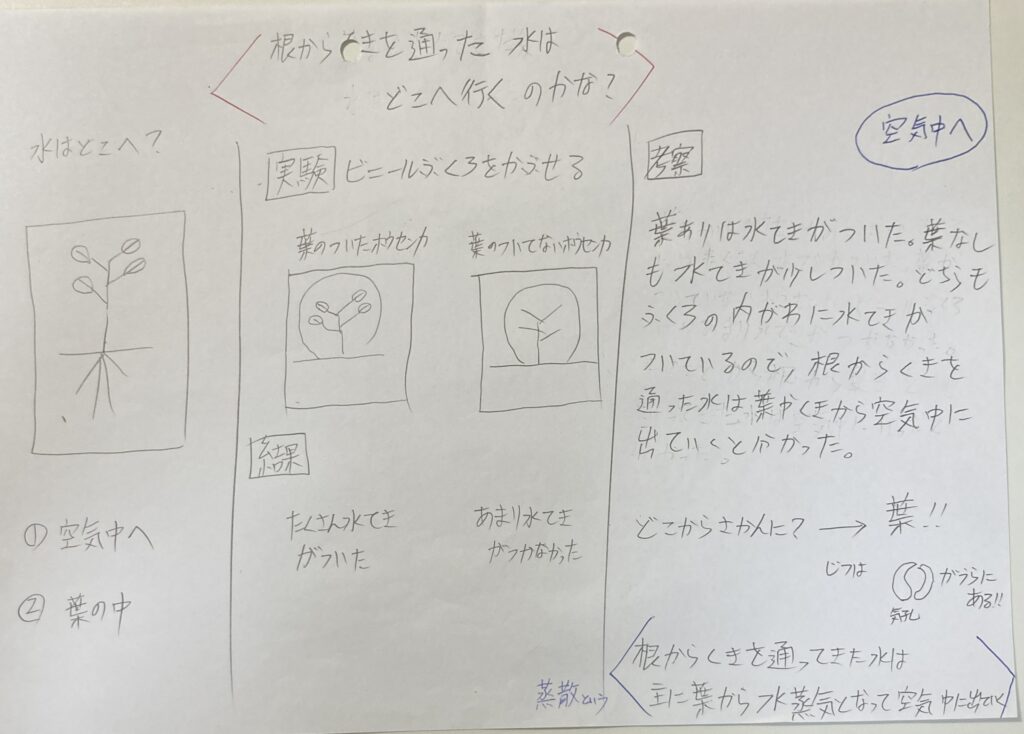 根からくきを通った水は
どこへ行くのかな?
水はどこへ?
① 空気中へ
② 葉の中
実験 ビニールぶくろをかぶせる
葉のついたホウセンカ
葉のついてないホウセンカ
結果
たくさん水てき
がついた
あまり水てき
がつかなかった
考察
空気中へ
葉ありは水てきがついた。葉なし
も水てきが少しついた。どちらも
ふくろの内がわに水てきが
ついているので、根からくきを
通った水は葉やくきから空気中に
出ていくと分かった。
どこからさかんに? → 葉!!
じつは
気孔
がうらに
ある!!
根からくきを通ってきた水は
主に葉から水蒸気となって空気中に出ていく
蒸散という